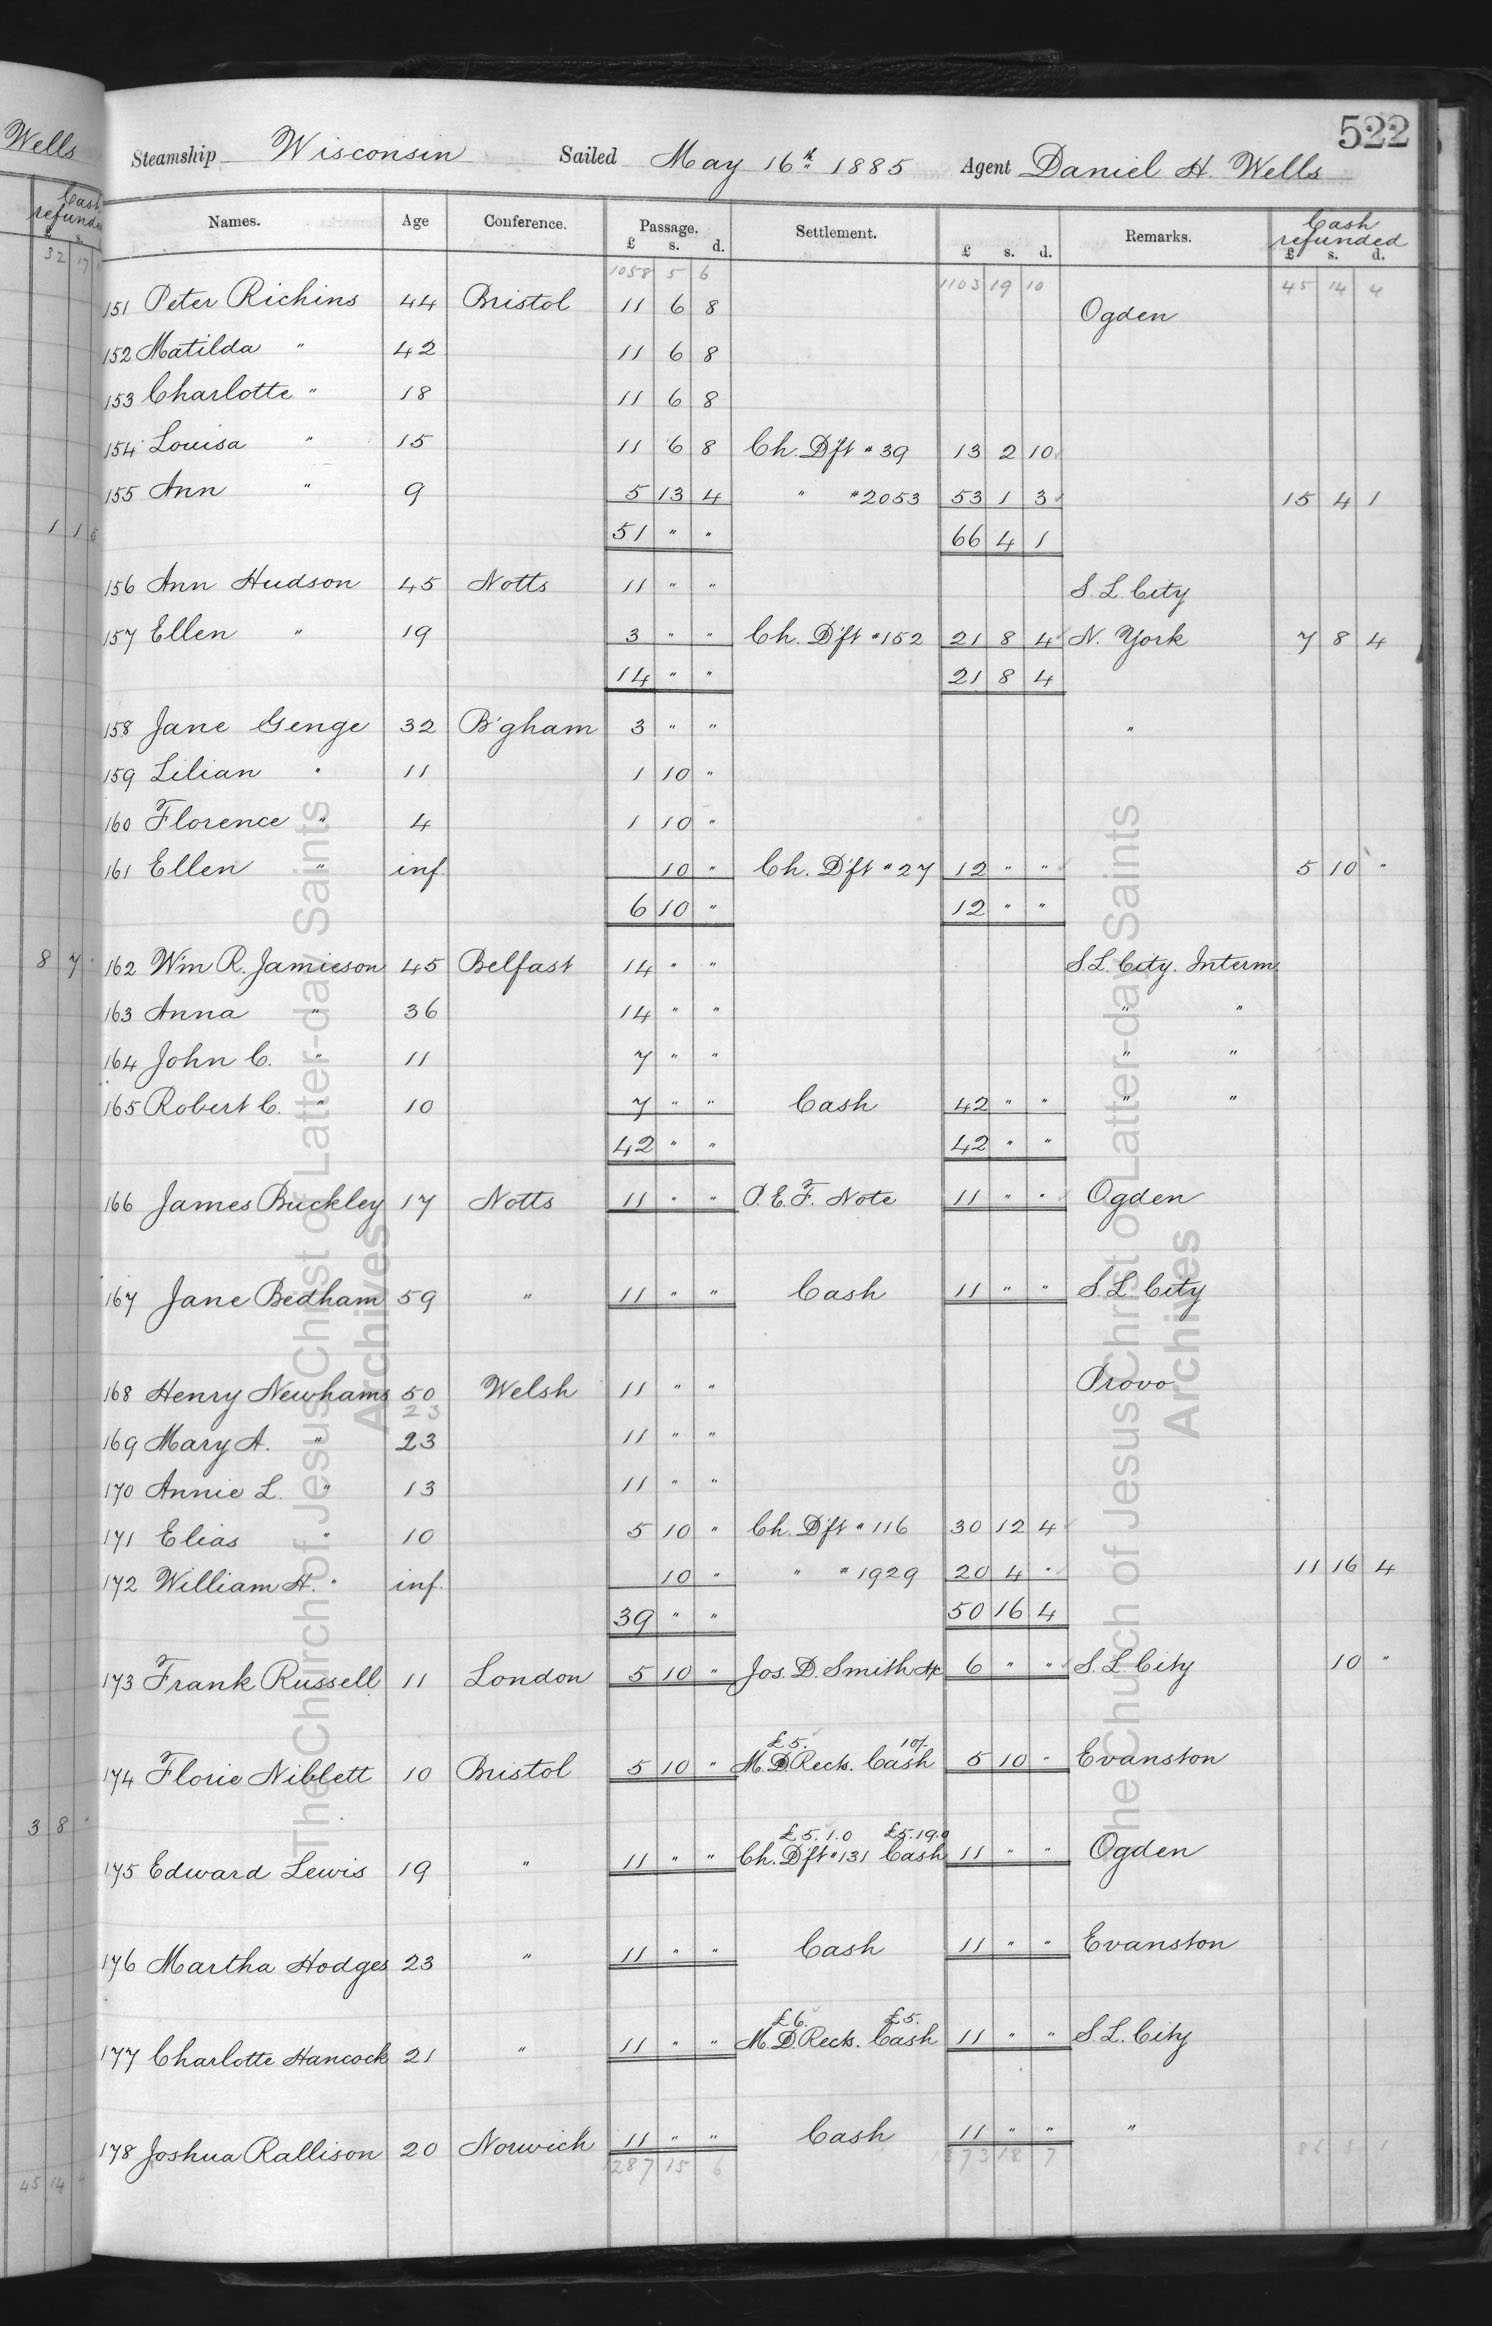 522
Wells
Steamship Wisconsin Sailed May 16th 1885 Agent Daniel H. Wells
Cash refunded
Names. Age Conference. Passage. Settlement. Remarks. Cash refunded
£ s. d. £ s. d. £ s. d.
32 17
1058 5 6 1103 19 10 45 14 4
151 Peter Richins 44 Bristol 11 6 8 Ogden
152 Matilda " 42 11 6 8
153 Charlotte " 18 11 6 8
154 Louisa " 15 11 6 8 Ch. Dft #39 13 2 10
155 Ann " 9 5 13 4 " #2053 53 1 3 15 4 1
1 1 6 51 " " 66 4 1
156 Ann Hudson 45 Notts 11 " " S. L. City
157 Ellen " 19 3 " " Ch. Dft #152 21 8 4 N. York 7 8 4
14 " " 21 8 4
158 Jane Genge 32 B'gham 3 " " "
159 Lilian " 11 1 10 "
160 Florence " 4 1 10 "
161 Ellen " inf. 10 " Ch. Dft #27 12 " " 5 10 "
6 10 " 12 " "
8 7 162 Wm R. Jamieson 45 Belfast 14 " " S. L. City. Interm.
163 Anna " 36 14 " " " "
164 John C. " 11 7 " " " "
165 Robert C. " 10 7 " " Cash 42 " " " "
42 " " 42 " "
166 James Buckley 17 Notts 11 " " P. E. F. Note 11 " " Ogden
167 Jane Bedham 59 " 11 " " Cash 11 " " S. L. City
168 Henry Newhams 50 Welsh 11 " " Provo
23
169 Mary A. " 23 11 " "
170 Annie L. " 13 11 " "
171 Elias " 10 5 10 " Ch. Dft #116 30 12 4
172 William H. " inf. 10 " " #1929 20 4 " 11 16 4
39 " " 50 16 4
173 Frank Russell 11 London 5 10 " Jos. D. Smith 6 " " S. L. City 10 "
£5. 10/-
174 Florie Niblett 10 Bristol 5 10 " M. D. Rects. Cash 5 10 " Evanston
3 8 "
£5.1.0 £5.19.0
175 Edward Lewis 19 " 11 " " Ch. Dft #131 Cash 11 " " Ogden
176 Martha Hodges 23 " 11 " " Cash 11 " " Evanston
£6. £5.
177 Charlotte Hancock 21 " 11 " " M. D. Rects. Cash 11 " " S. L. City
178 Joshua Rallison 20 Norwich 11 " " Cash 11 " " "
45 14 1287 15 6 18 7
The Church of Jesus Christ of Latter-day Saints
Archives
The Church of Jesus Christ of Latter-day Saints
Archives